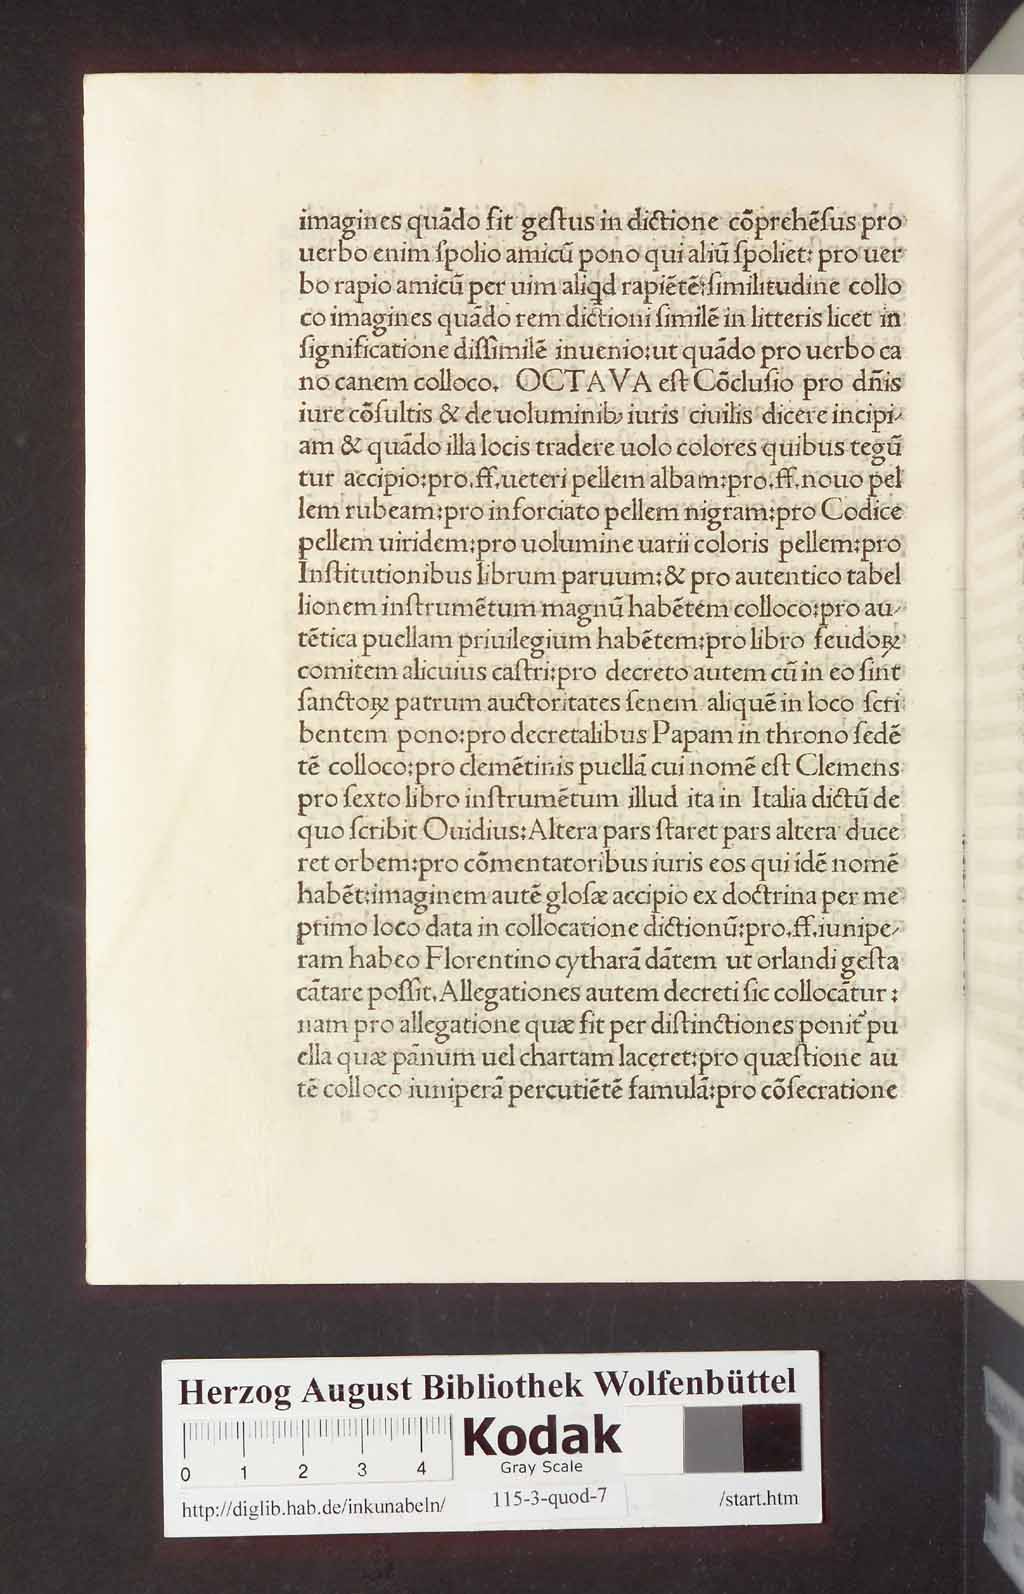 imagines quãdo fit geſtus in dictione cõprehẽſus pro
uerbo enim ſpolio amicũ pono qui aliũ ſpoliet: pro uer
bo rapio amicũ per uim aliqd rapiẽtẽ:ſimilitudine collo
co imagines quãdo rem dictioni ſimilẽ in litteris licet in
ſignificatione diſſimilẽ inuenio:ut quãdo pro uerbo ca
no canem colloco. OCTAVA eſt Cõcluſio pro dñis
iure cõſultis & de uoluminibꝫ iuris ciuilis dicere incipi-
am & quãdo illa locis tradere uolo colores quibus tegũ
tur accipio:pro.ff.ueteri pellem albam:pro.ff.nouo pel
lem rubeam:pro inforciato pellem nigram:pro Codice
pellem uiridem:pro uolumine uarii coloris pellem:pro
Inſtitutionibus librum paruum:& pro autentico tabel
lionem inſtrumẽtum magnũ habẽtem colloco:pro au-
tẽtica puellam priuilegium habẽtem:pro libro feudoꝝ
comitem alicuius caſtri:pro decreto autem cũ in eo ſint
ſanctoꝝ patrum auctoritates ſenem aliquẽ in loco ſcri
bentem pono:pro decretalibus Papam in throno ſedẽ
tẽ colloco:pro clemẽtinis puellã cui nomẽ eſt Clemens
pro ſexto libro inſtrumẽtum illud ita in Italia dictũ de
quo ſcribit Ouidius:Altera pars ſtaret pars altera duce
ret orbem:pro cõmentatoribus iuris eos qui idẽ nomẽ
habẽt:imaginem autẽ gloſæ accipio ex doctrina per me
primo loco data in collocatione dictionũ:pro.ff.iunipe-
ram habeo Florentino cytharã dãtem ut orlandi geſta
cãtare poſſit.Allegationes autem decreti ſic collocãtur:
nam pro allegatione quæ fit per diſtinctiones ponit᷑ pu
ella quæ pãnum uel chartam laceret:pro quæſtione au
tẽ colloco iuniperã percutiẽtẽ famulã:pro cõſecratione
Herzog August Bibliothek Wolfenbüttel
Kodak
Gray Scale
0 1 2 3 4
http://diglib.hab.de/inkunabeln/ 115-3-quod-7 /start.htm